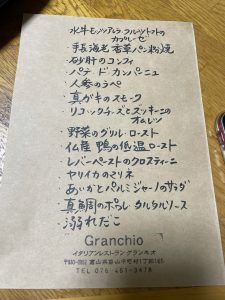 水牛モッツァレラ・フルーツトマトの
カプレーゼ
・手長海老 香草パン粉焼
・砂肝のコンフィ
・パテ ド カンパーニュ
・人参のラペ
・真ガキのスモーク
・リコッタチーズとズッキーニの
オムレツ
・野菜のグリル・ロースト
・仏産 鴨の低温ロースト
・レバーペーストのクロスティーニ
・ヤリイカのマリネ
・パルミジャーノのサラダ
・真鯛のポワレ タルタルソース
・溺れだこ
Granchio
イタリアンレストラン グランキオ
富山県富山市
TEL 076-461-3478